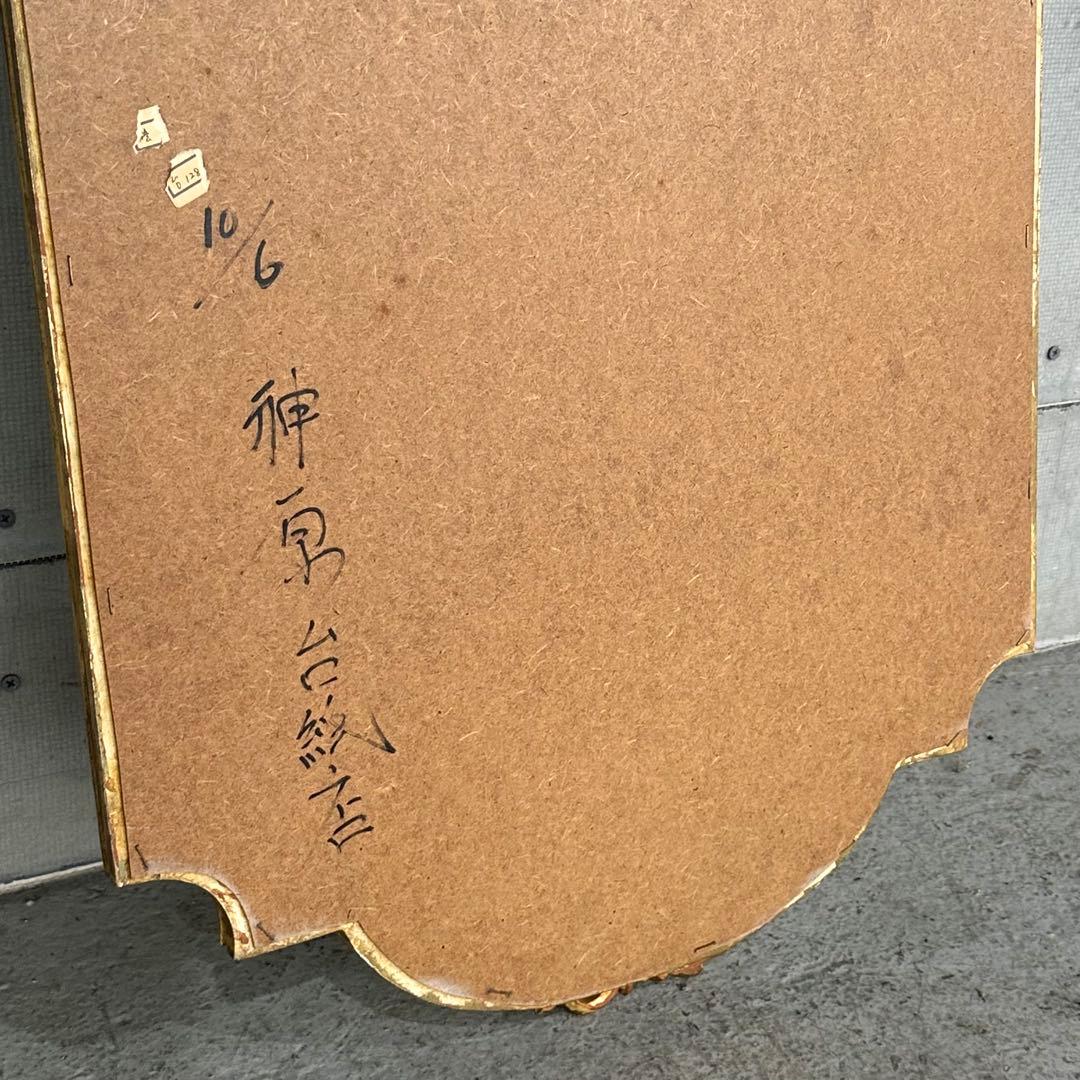 10/6
神原台紙店